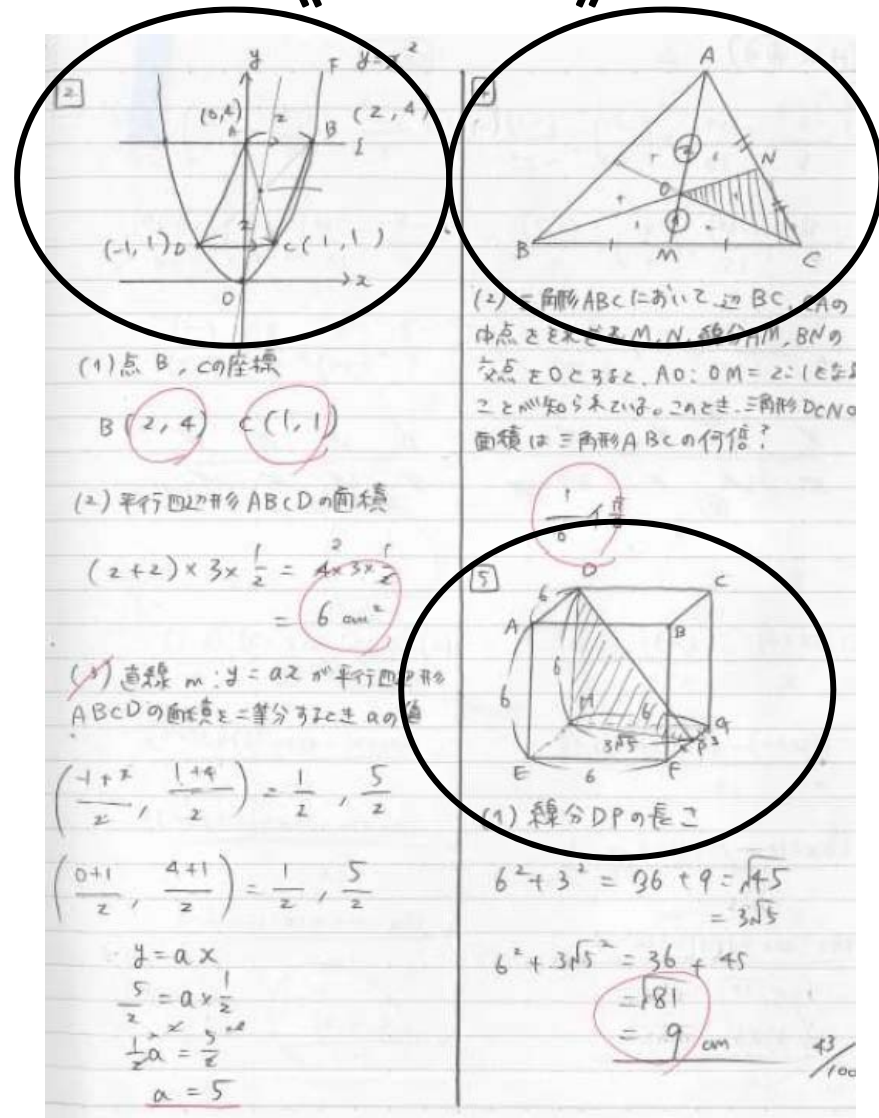 2
y
F y=x²
(0,4)
A
2
B
(2,4)
l
(-1,1) D
2
C(1,1)
O
x
(1)点B,Cの座標
B(2,4) C(1,1)
(2)平行四辺形ABCDの面積
(2+2)×3×1/2 = 4×3×1/2
= 6 cm²
(3)直線m:y=axが平行四辺形
ABCDの面積を二等分するとき aの値
(-1+2/2, 1+4/2) = 1/2, 5/2
(0+1/2, 4+1/2) = 1/2, 5/2
y=ax
5/2 = a×1/2
1/2a = 5/2
a = 5
A
2
N
O
1
B
M
C
(2)三角形ABCにおいて、辺BC,CAの
中点をそれぞれM,N,線分AM,BNの
交点をOとすると、AO:OM=2:1となる
ことが知られている。このとき、三角形OCNの
面積は三角形ABCの何倍?
1/6 倍
5
D
C
6
A
B
6
6
H
6
G
3√5
P
3
E
6
F
(1)線分DPの長さ
6²+3² = 36+9 = √45
= 3√5
6²+3√5² = 36+45
= √81
= 9 cm
43/100